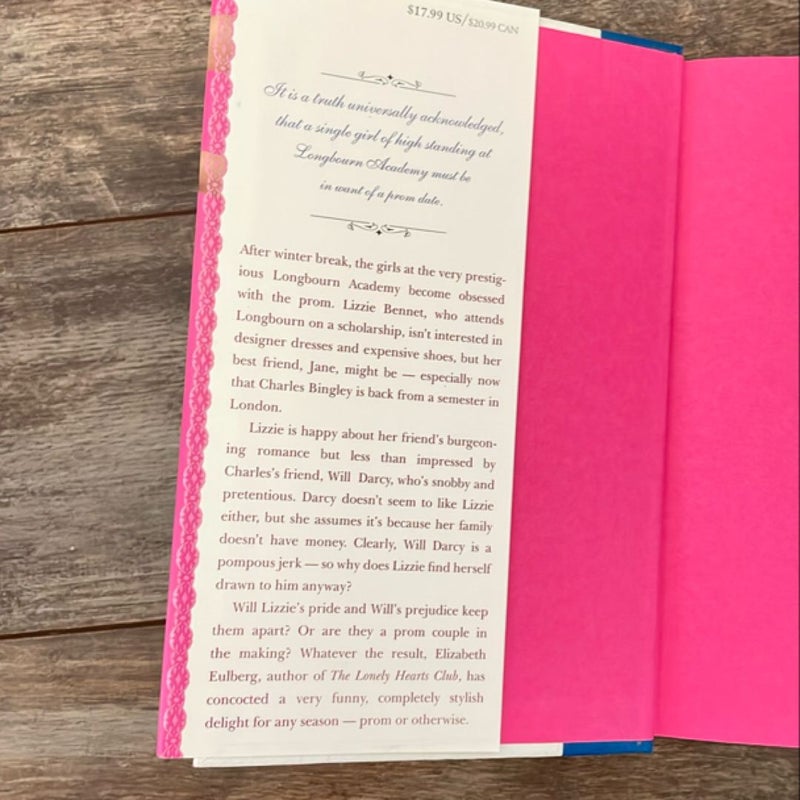 $17.99 US/$20.99 CAN
It is a truth universally acknowledged,
that a single girl of high standing at
Longbourn Academy must be
in want of a prom date.
After winter break, the girls at the very prestig-
ious Longbourn Academy become obsessed
with the prom. Lizzie Bennet, who attends
Longbourn on a scholarship, isn't interested in
designer dresses and expensive shoes, but her
best friend, Jane, might be — especially now
that Charles Bingley is back from a semester in
London.
Lizzie is happy about her friend's burgeon-
ing romance but less than impressed by
Charles's friend, Will Darcy, who's snobby and
pretentious. Darcy doesn't seem to like Lizzie
either, but she assumes it's because her family
doesn't have money. Clearly, Will Darcy is a
pompous jerk — so why does Lizzie find herself
drawn to him anyway?
Will Lizzie's pride and Will's prejudice keep
them apart? Or are they a prom couple in
the making? Whatever the result, Elizabeth
Eulberg, author of The Lonely Hearts Club, has
concocted a very funny, completely stylish
delight for any season — prom or otherwise.